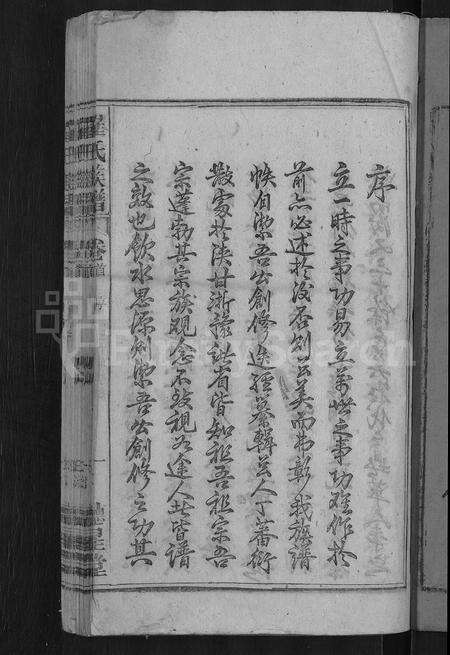 序
立一時之事功易立萬世之事功難作於
前亦必述於後否則公美而弗彰我族譜
帙自潔吾公創修迭經纂輯公人丁蕃衍
散處於陝甘浙諸省皆知祖吾祖宗吾
宗蓬勃其宗族观念不致視為途人此皆譜
之效也飲水思源則潔吾公創修之功其
氏族譜
卷首
序
一